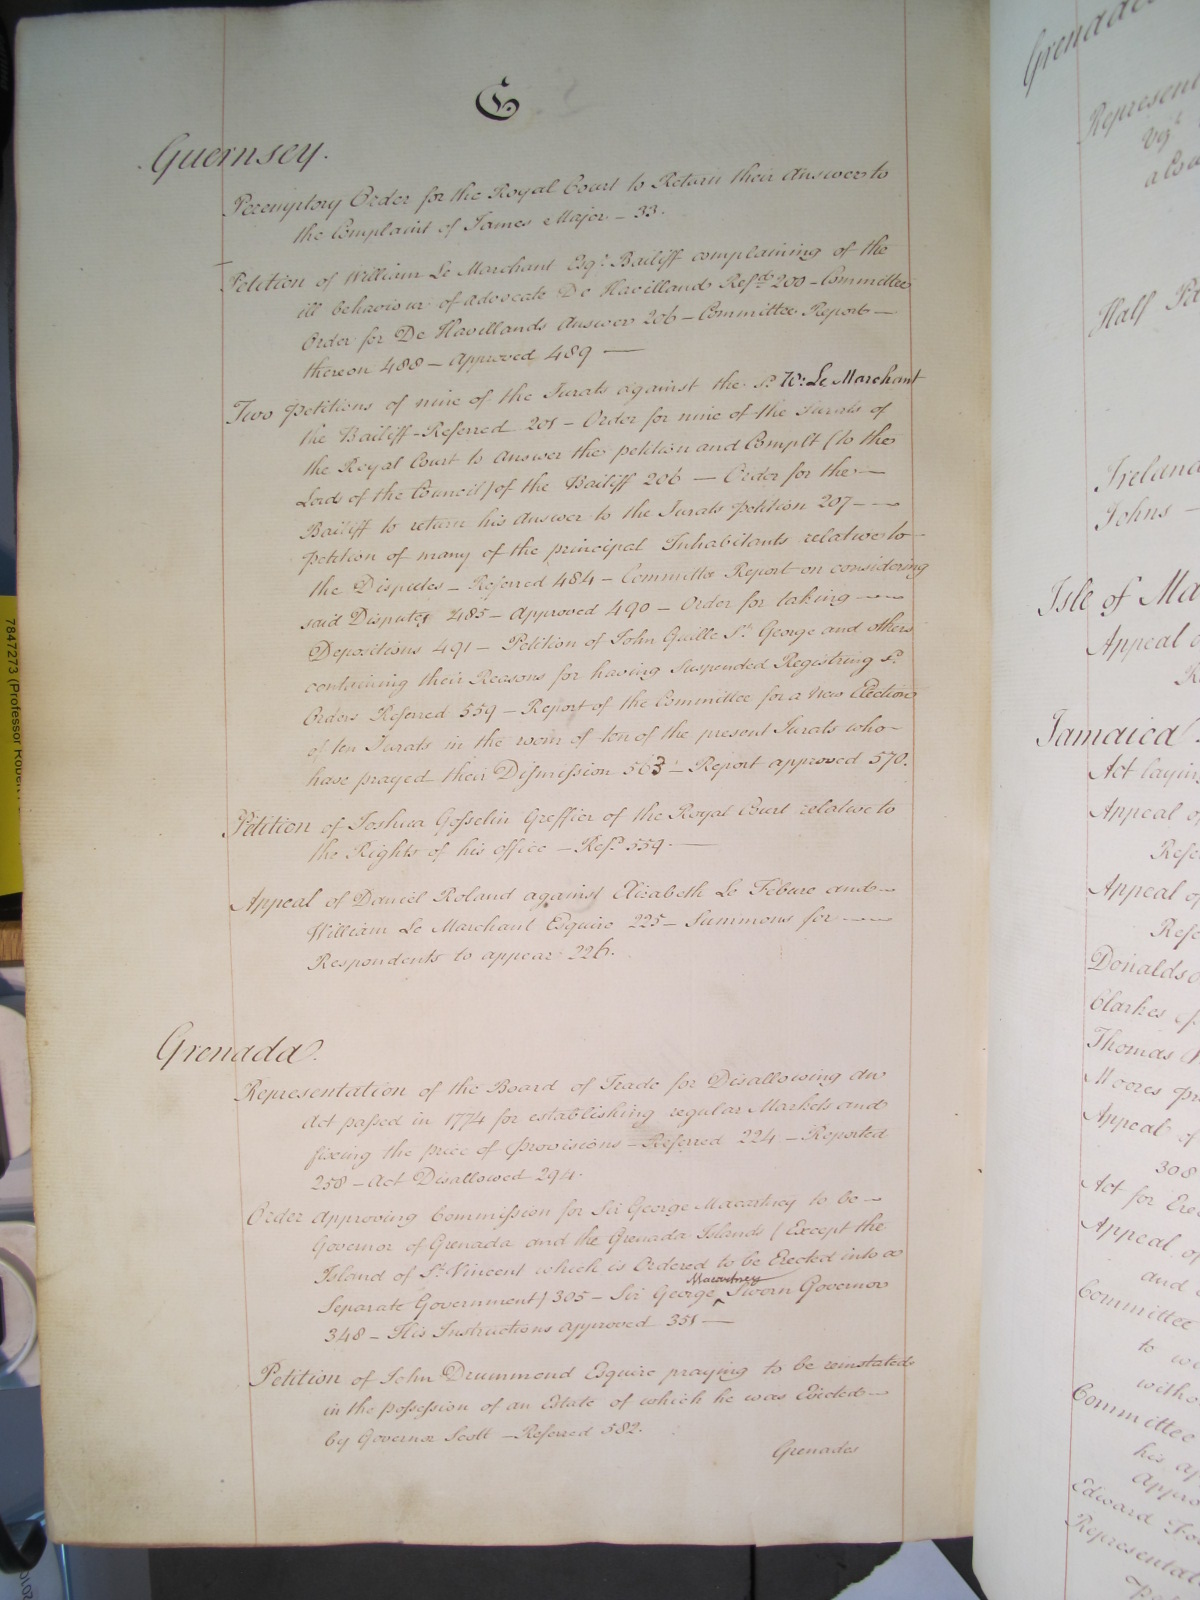 G
Guernsey.
Peremptory Order for the Royal Court to Return their Answer to
the Complaint of James Major – 33.
Petition of William Le Marchant Esqr. Bailiff complaining of the
ill behaviour of Advocate De Havilland Refd. 200 – Committee
Order for De Havillands Answer 206 – Committee Report –
thereon 488 – Approved 489 —
Two petitions of nine of the Jurats against the sd. Wm: Le Marchant
the Bailiff – Referred 201 – Order for nine of the Jurats of
the Royal Court to Answer the petition and Complt (to the
Lords of the Council) of the Bailiff 206 — Order for the —
Bailiff to return his Answer to the Jurats petition 207 —
petition of many of the principal Inhabitants relative to
the Disputes – Referred 484 – Committee Report on considering
said Disputes 485 – Approved 490 – Order for taking —
Depositions 491 – Petition of John Guille St. George and others
containing their Reasons for having Suspended Registring sd.
Orders Referred 559 – Report of the Committee for a New Election
of ten Jurats in the room of ten of the present Jurats who
have prayed their Dismission 563 – Report approved 570.
Petition of Joshua Gosselin Greffier of the Royal Court relative to
the Rights of his office – Refd. 559. —
Appeal of Daniel Roland against Elizabeth Le Febure and
William Le Marchant Esquire 225 – Summons for —
Respondents to appear 226.
Grenada.
Representation of the Board of Trade for Disallowing an
Act passed in 1774 for establishing regular Markets and
fixing the price of provisions – Referred 224 – Reported
258 – Act Disallowed 294.
Order Approving Commission for Sir George Macartney to be –
Governor of Grenada and the Grenada Islands (Except the
Island of St. Vincent which is Ordered to be Erected into a
Separate Government) 305 – Sir George Macartney Sworn Governor
348 – His Instructions approved 351 —
Petition of John Drummond Esquire praying to be reinstated
in the possession of an Estate of which he was Evicted —
by Governor Scott – Referred 582.
Grenades
7847273 (Professor
Represent
also
Half
Ireland
Johns –
Isle of Ma
Appeal
Jamaica
Act laying
Appeal of
Refe
Appeal of
Refe
Donalds
Clarkes
Thomas
Moores
Appeal of
308
Act for Ere
Appeal of
and
Committee
to
witho
Committee
his
Appro
Edward
Representat